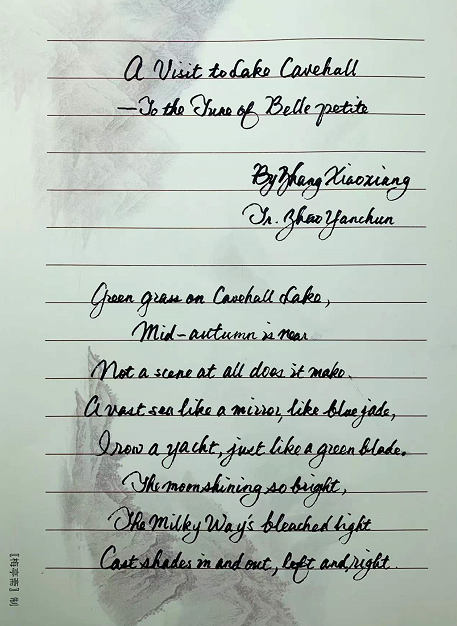 A Visit to Lake Cavehall
—To the Tune of Belle petite
By Zhang Xiaoxiang
Tr. Zhao Yanchun
Green grass on Cavehall Lake,
Mid-autumn is near
Not a scene at all does it make.
A vast sea like a mirror, like blue jade,
I row a yacht, just like a green blade.
The moon shining so bright,
The Milky Way's bleached light
Cast shades in and out, left and right.
【梅亭斋】制